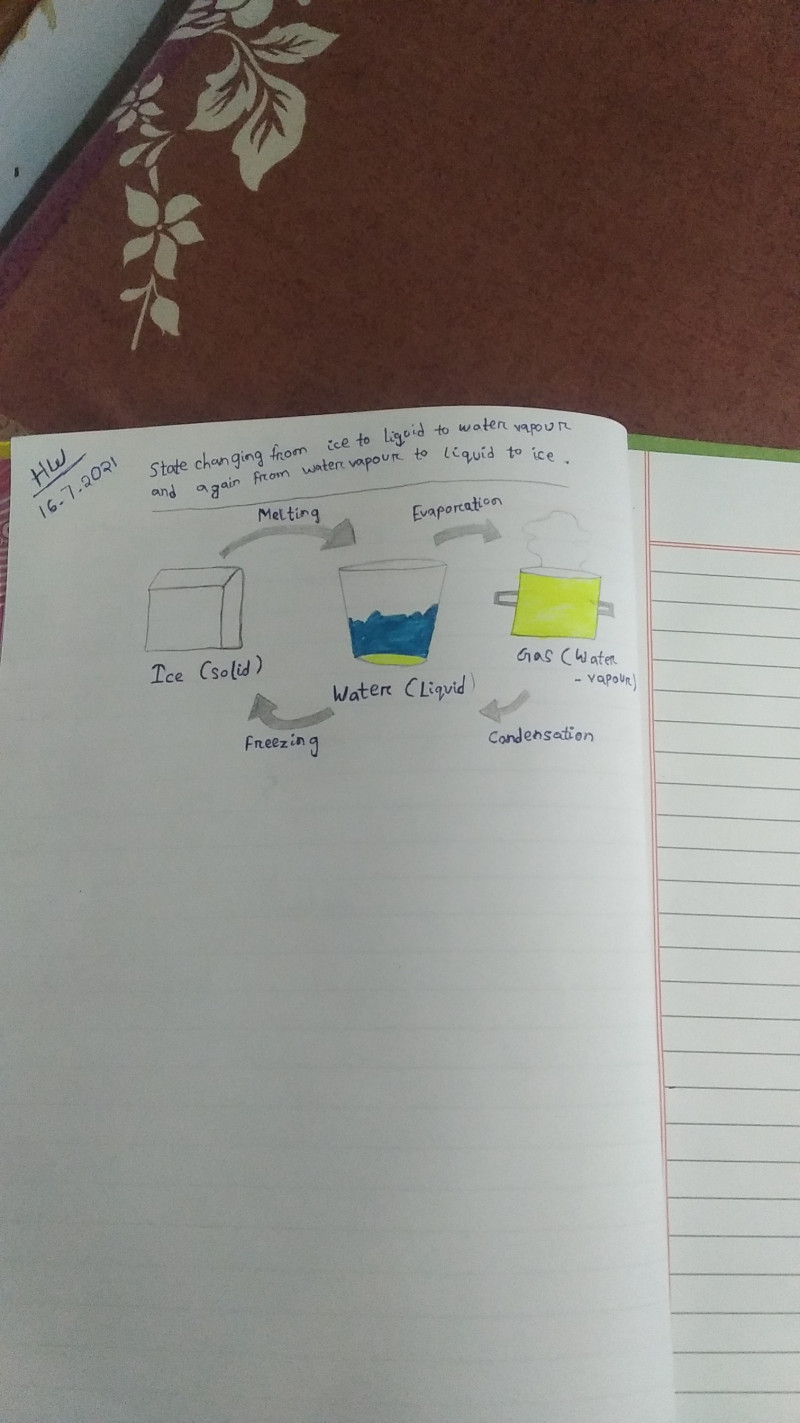 HW
16-7-2021
State changing from ice to liquid to water vapour
and again from water vapour to liquid to ice.
Melting
Evaporation
Ice (solid)
Water (Liquid)
Gas (Water
- vapour)
Freezing
Condensation